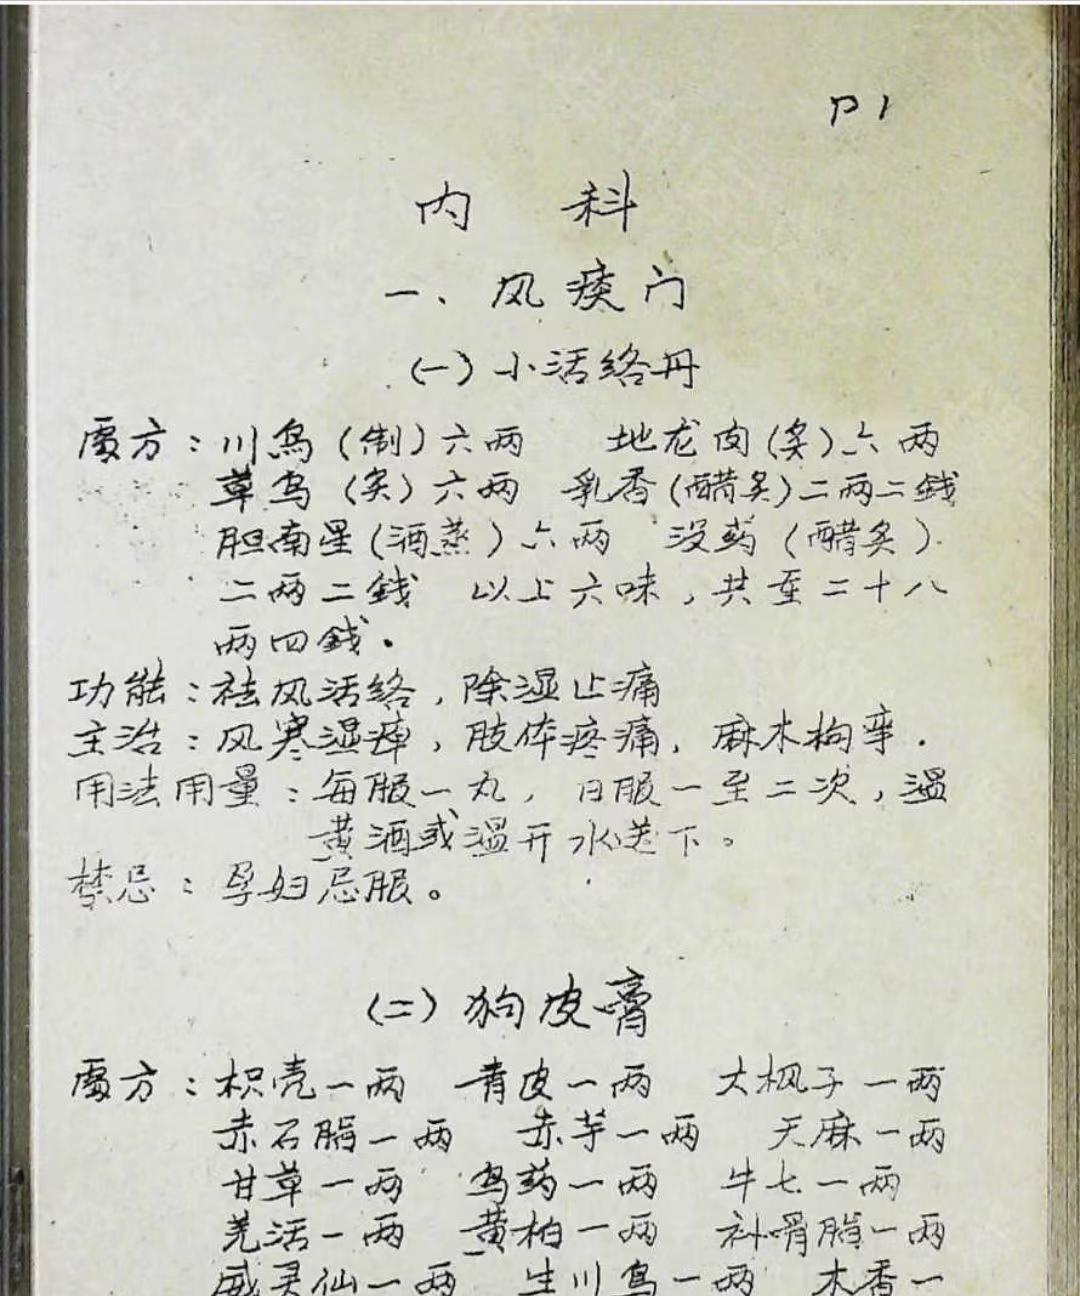 P1
内 科
一、风痰门
(一)小活络丹
處方：川乌(制)六两 地龙肉(炙)六两
草乌(炙)六两 乳香(醋炙)二两二銭
胆南星(酒蒸)六两 没药(醋炙)
二两二銭 以上六味，共重二十八
两四銭.
功能：祛风活络，除湿止痛
主治：风寒湿痺，肢体疼痛，麻木拘挛.
用法用量：每服一丸，日服一至二次，温
黄酒或温开水送下。
禁忌：孕妇忌服。
(二)狗皮膏
處方：枳壳一两 青皮一两 大枫子一两
赤石脂一两 赤芍一两 天麻一两
甘草一两 乌药一两 牛七一两
羌活一两 黄柏一两 补骨脂一两
威灵仙一两 生川乌一两 木香一